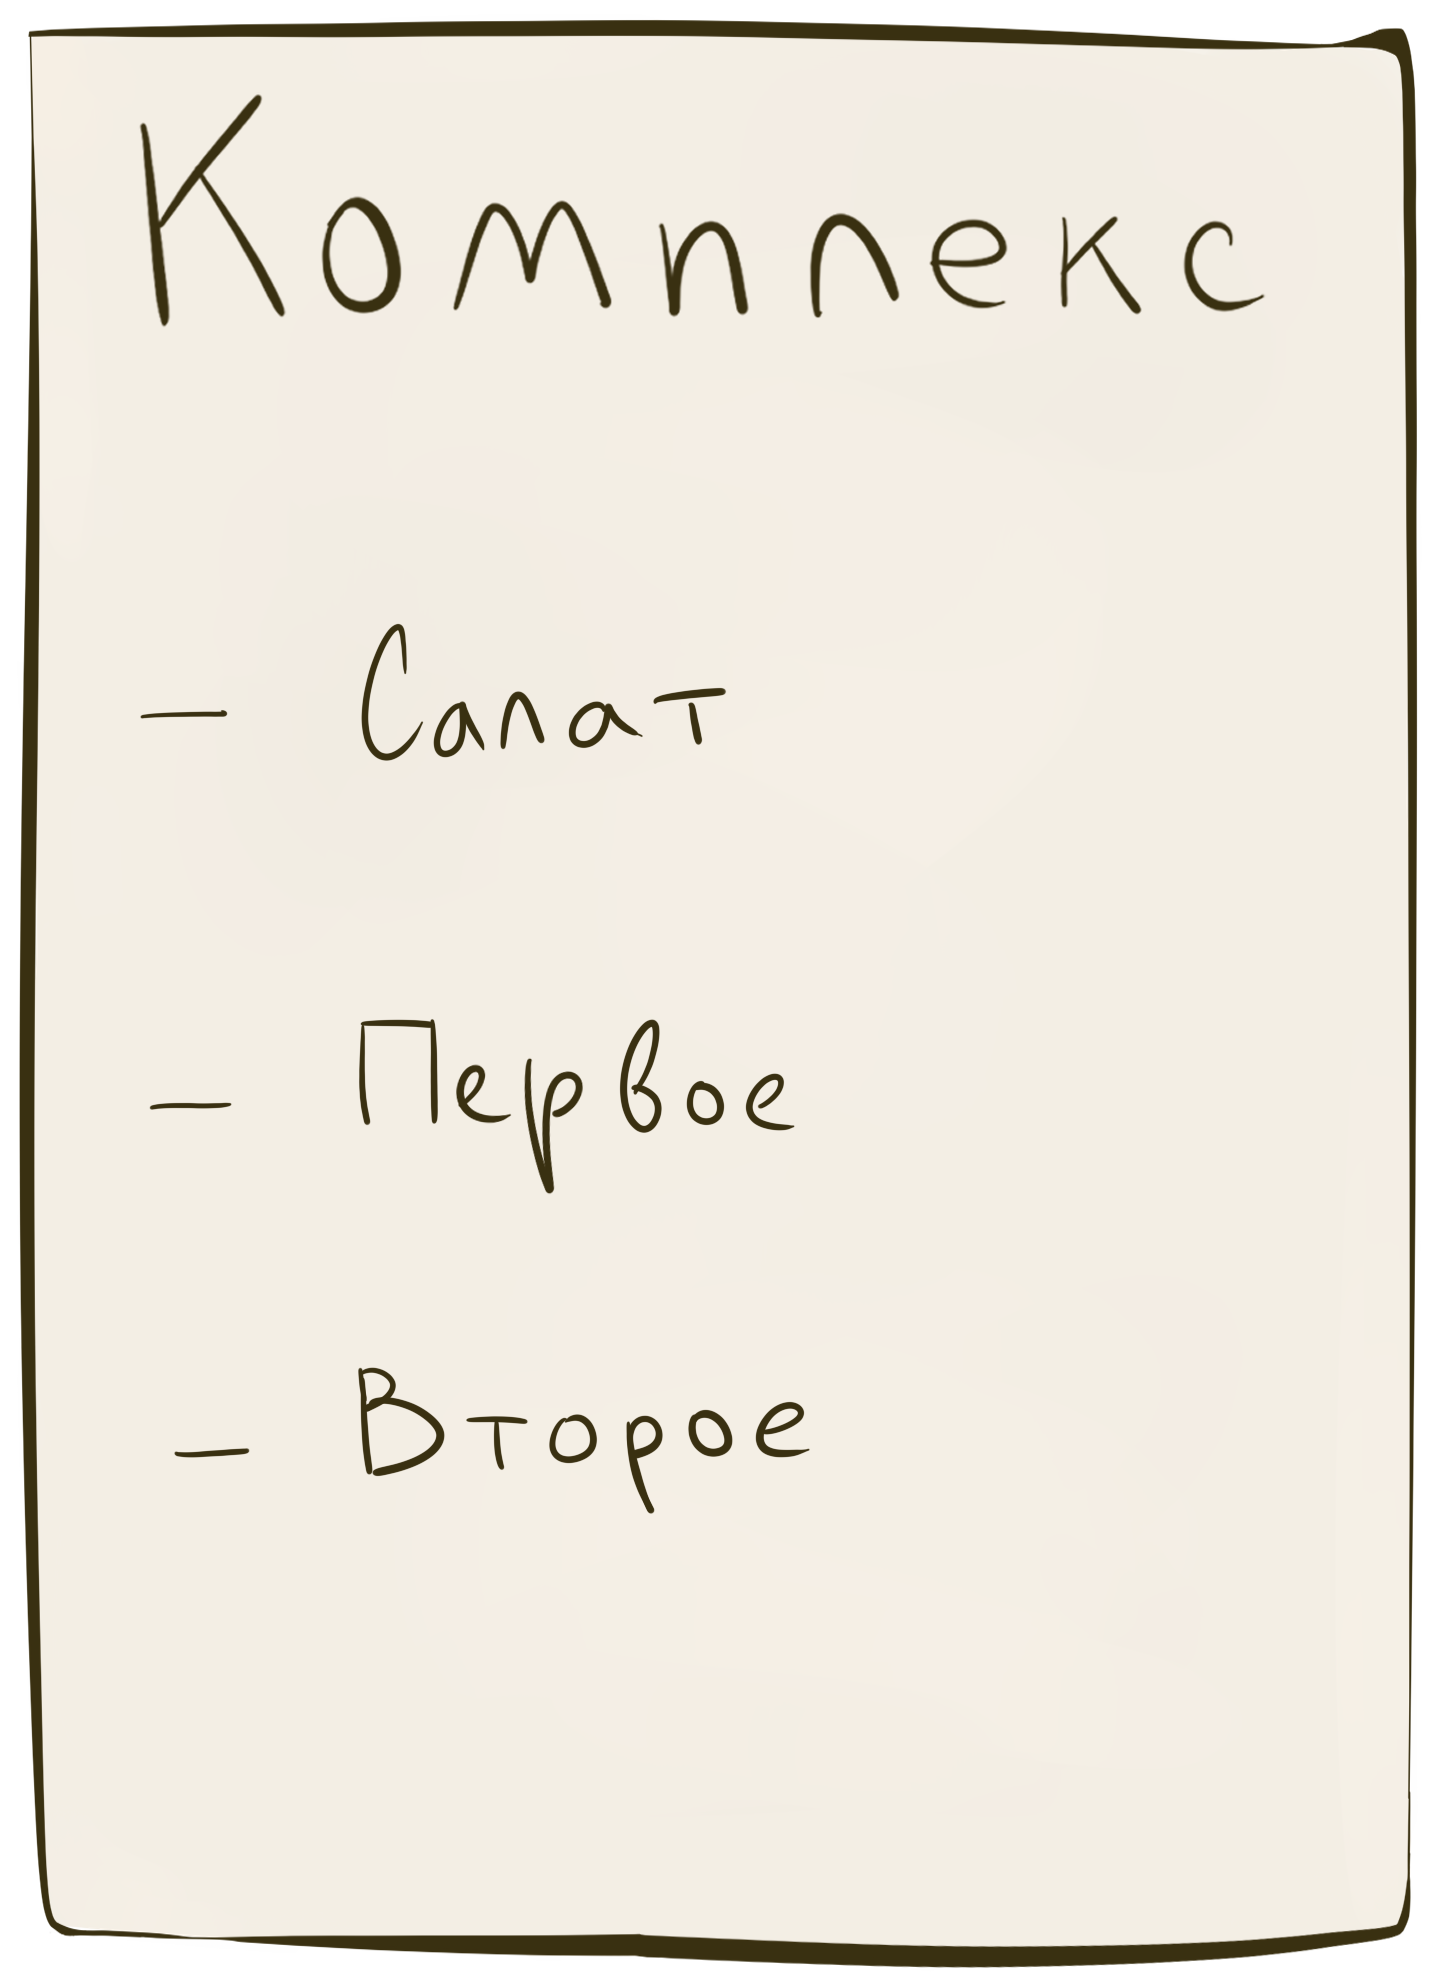 Комплекс
- Салат
- Первое
- Второе